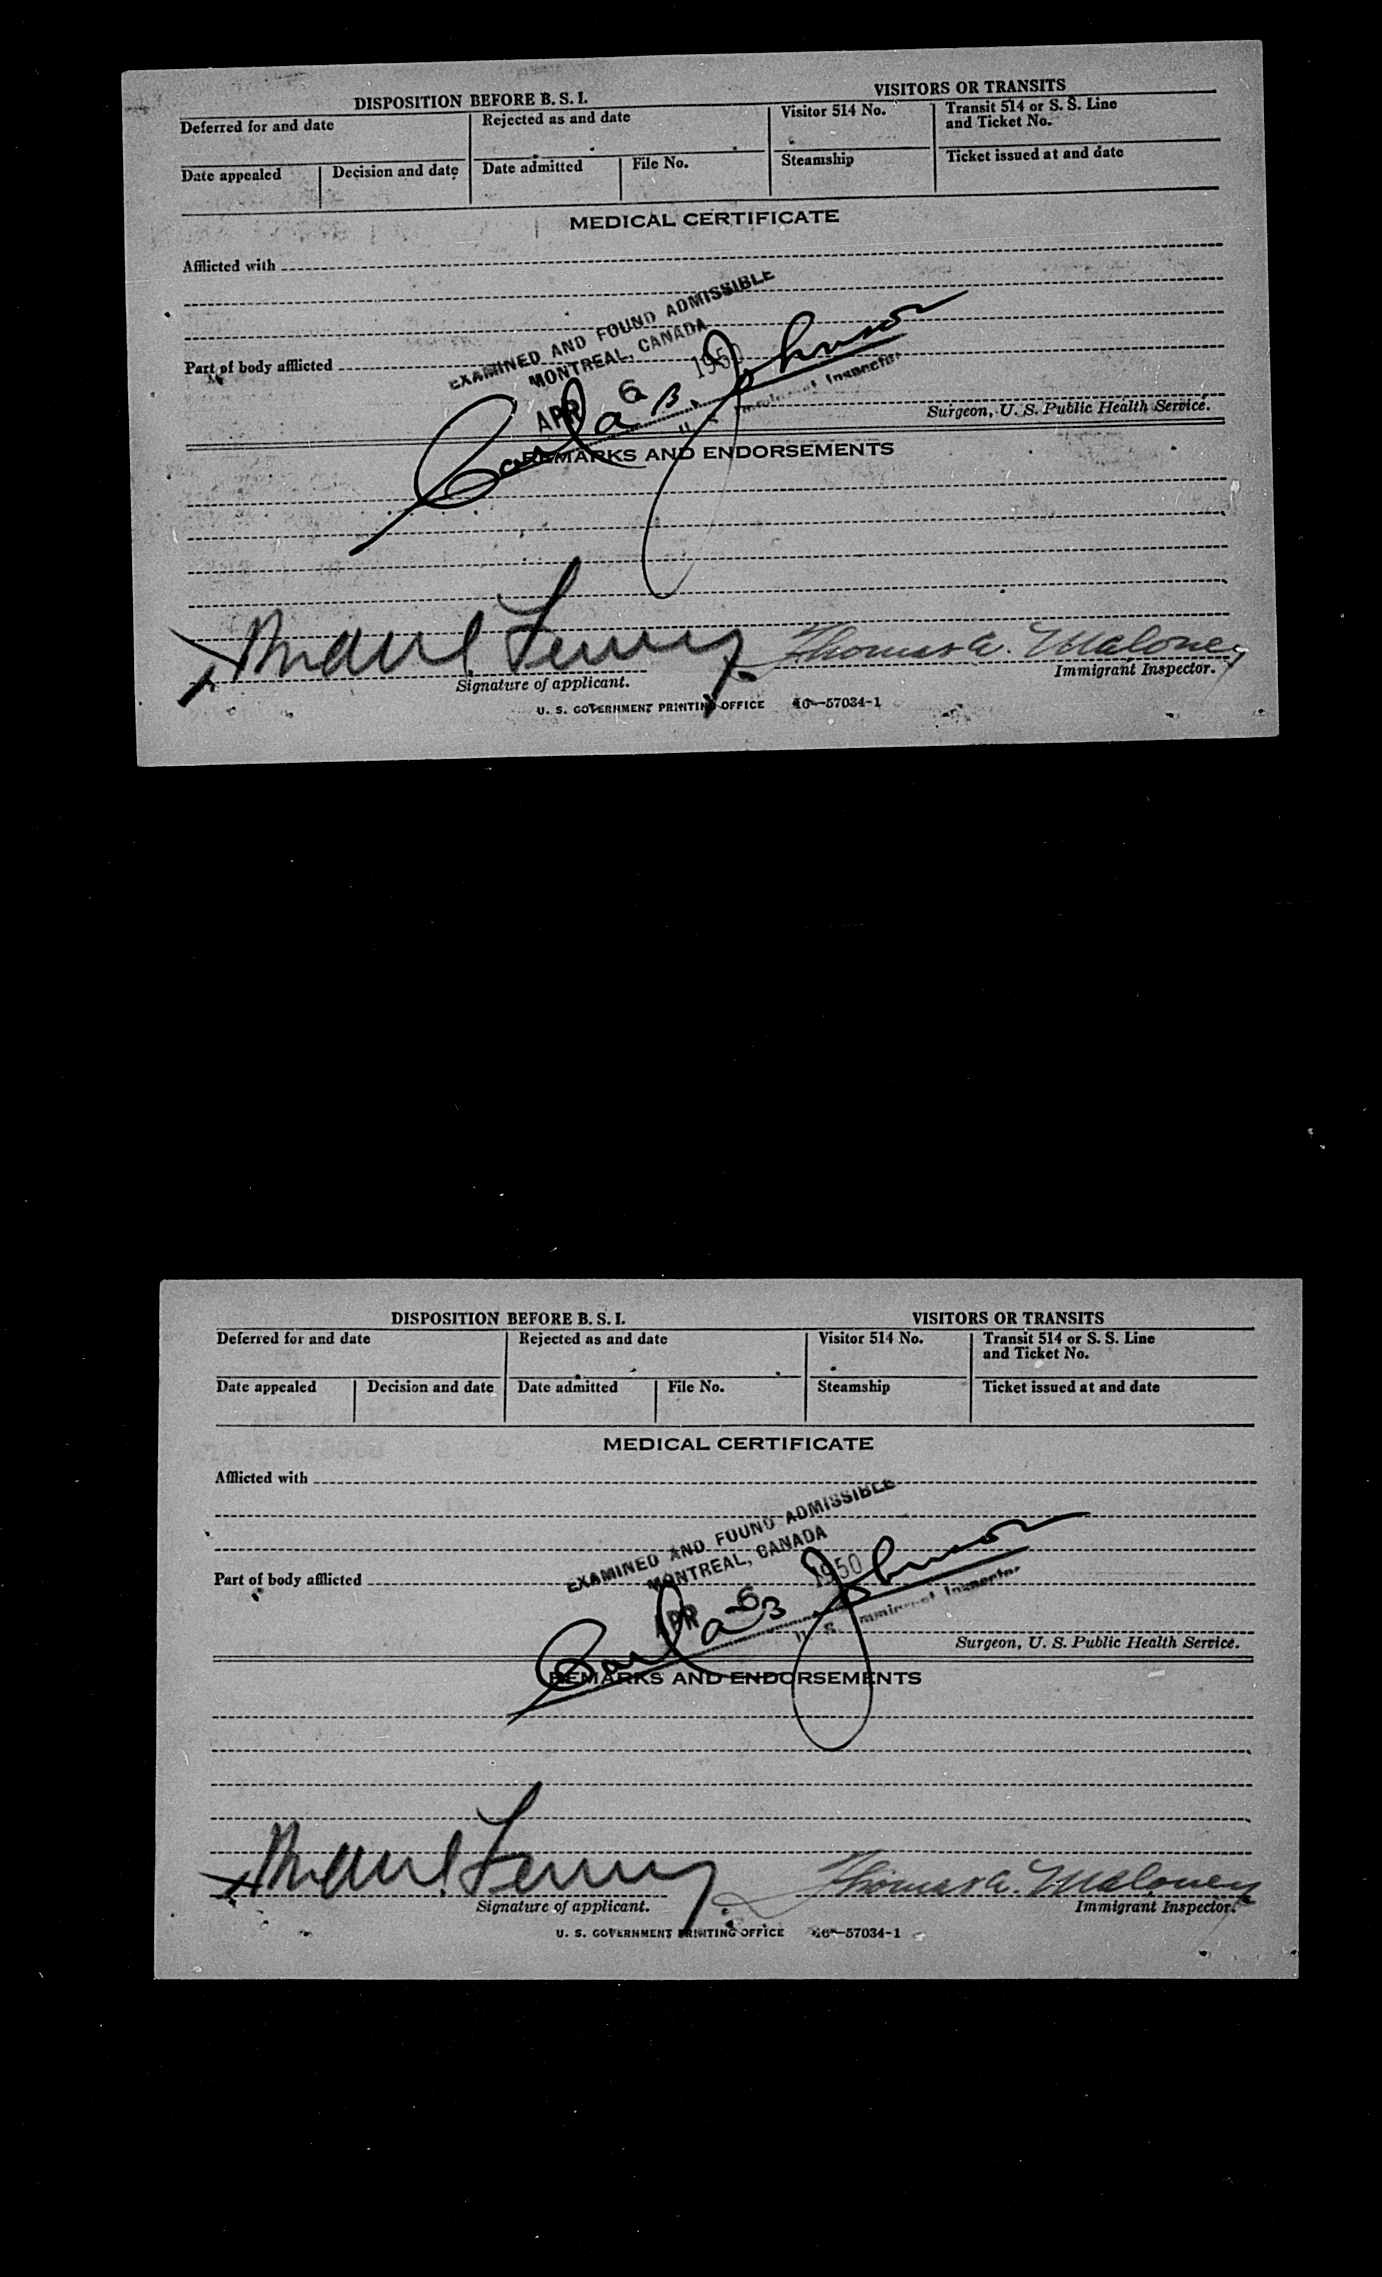 DISPOSITION BEFORE B. S. I. VISITORS OR TRANSITS
Deferred for and date Rejected as and date Visitor 514 No. Transit 514 or S. S. Line and Ticket No.
Date appealed Decision and date Date admitted File No. Steamship Ticket issued at and date
MEDICAL CERTIFICATE
Afflicted with
EXAMINED AND FOUND ADMISSIBLE
MONTREAL, CANADA
Part of body afflicted
APR 6 1950
Carl B. Johnson
U S Immigrant Inspector
Surgeon, U. S. Public Health Service.
REMARKS AND ENDORSEMENTS
Thomas A. Maloney
Signature of applicant. Immigrant Inspector.
U. S. GOVERNMENT PRINTING OFFICE 16—57034-1
DISPOSITION BEFORE B. S. I. VISITORS OR TRANSITS
Deferred for and date Rejected as and date Visitor 514 No. Transit 514 or S. S. Line and Ticket No.
Date appealed Decision and date Date admitted File No. Steamship Ticket issued at and date
MEDICAL CERTIFICATE
Afflicted with
EXAMINED AND FOUND ADMISSIBLE
MONTREAL, CANADA
Part of body afflicted
APR 6 1950
Carl B. Johnson
U S Immigrant Inspector
Surgeon, U. S. Public Health Service.
REMARKS AND ENDORSEMENTS
Thomas A. Maloney
Signature of applicant. Immigrant Inspector.
U. S. GOVERNMENT PRINTING OFFICE 16—57034-1